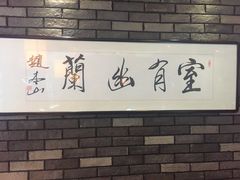 室有幽蘭
趙本山